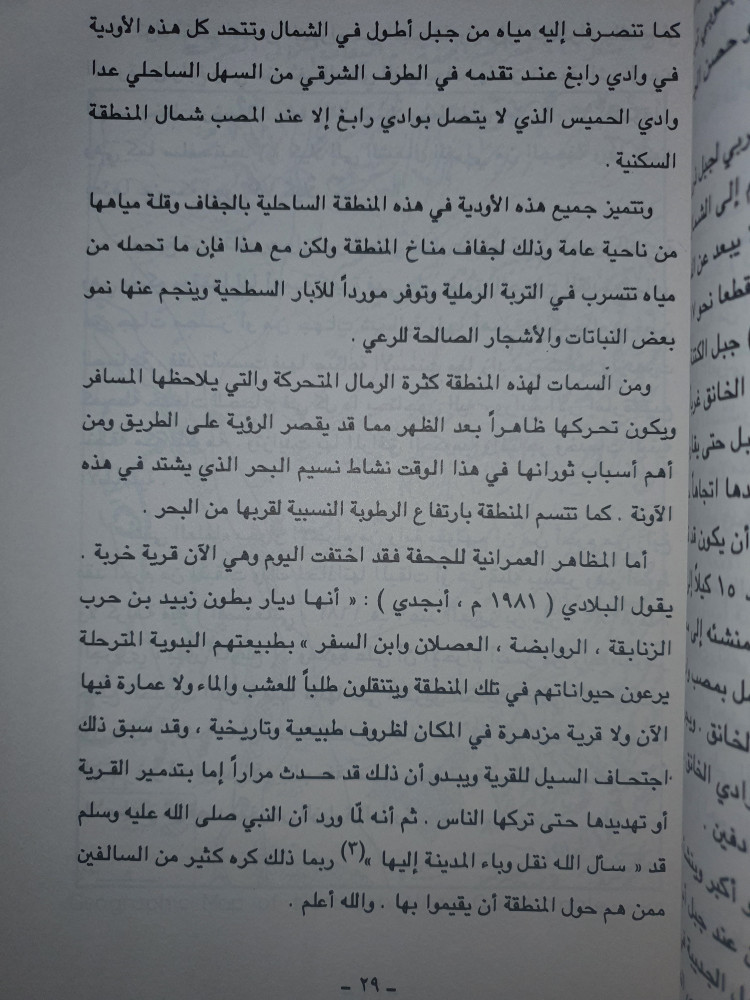 كما تنصرف إليه مياه من جبل أطول في الشمال وتتحد كل هذه الأودية
في وادي رابغ عند تقدمه في الطرف الشرقي من السهل الساحلي عدا
وادي الحميس الذي لا يتصل بوادي رابغ إلا عند المصب شمال المنطقة
السكنية .
وتتميز جميع هذه الأودية في هذه المنطقة الساحلية بالجفاف وقلة مياهها
من ناحية عامة وذلك لجفاف مناخ المنطقة ولكن مع هذا فإن ما تحمله من
مياه تتسرب في التربة الرملية وتوفر مورداً للآبار السطحية وينجم عنها نمو
بعض النباتات والأشجار الصالحة للرعي .
ومن السمات لهذه المنطقة كثرة الرمال المتحركة والتي يلاحظها المسافر
ويكون تحركها ظاهراً بعد الظهر مما قد يقصر الرؤية على الطريق ومن
أهم أسباب ثورانها في هذا الوقت نشاط نسيم البحر الذي يشتد في هذه
الآونة . كما تتسم المنطقة بارتفاع الرطوبة النسبية لقربها من البحر .
أما المظاهر العمرانية للجحفة فقد اختفت اليوم وهي الآن قرية خربة .
يقول البلادي ( ١٩٨١ م ، أبجدي ) : « أنها ديار بطون زبيد بن حرب
الزنابقة ، الروابضة ، العصلان وابن السفر » بطبيعتهم البدوية المترحلة
يرعون حيواناتهم في تلك المنطقة ويتنقلون طلباً للعشب والماء ولا عمارة فيها
الآن ولا قرية مزدهرة في المكان لظروف طبيعية وتاريخية ، وقد سبق ذلك
اجتحاف السيل للقرية ويبدو أن ذلك قد حدث مراراً إما بتدمير القرية
أو تهديدها حتى تركها الناس . ثم أنه لمّا ورد أن النبي صلى الله عليه وسلم
قد « سأل الله نقل وباء المدينة إليها »(٣) ربما ذلك كره كثير من السالفين
ممن هم حول المنطقة أن يقيموا بها . والله أعلم .
– ٢٩ –